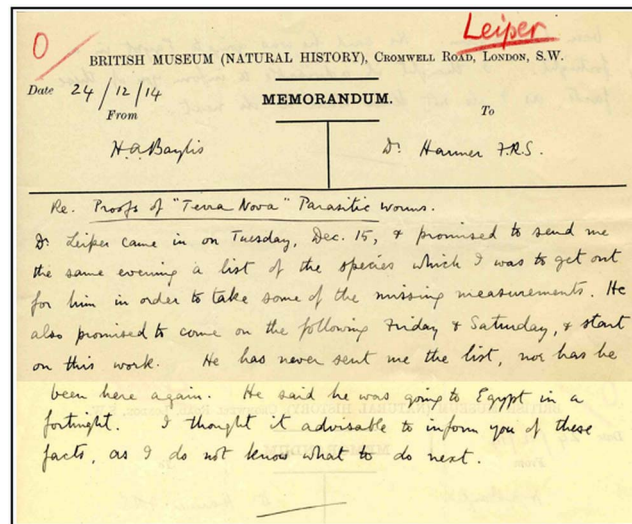 O
Leiper
BRITISH MUSEUM (NATURAL HISTORY), CROMWELL ROAD, LONDON, S.W.
Date 24/12/14
MEMORANDUM.
From
To
H.A. Baylis
Dr Harmer F.R.S.
Re. Proofs of "Terra Nova" Parasitic worms.
Dr Leiper came in on Tuesday, Dec. 15, & promised to send me
the same evening a list of the species which I was to get out
for him in order to take some of the missing measurements. He
also promised to come on the following Friday & Saturday, & start
on this work. He has never sent me the list, nor has he
been here again. He said he was going to Egypt in a
fortnight. I thought it advisable to inform you of these
facts, as I do not know what to do next.